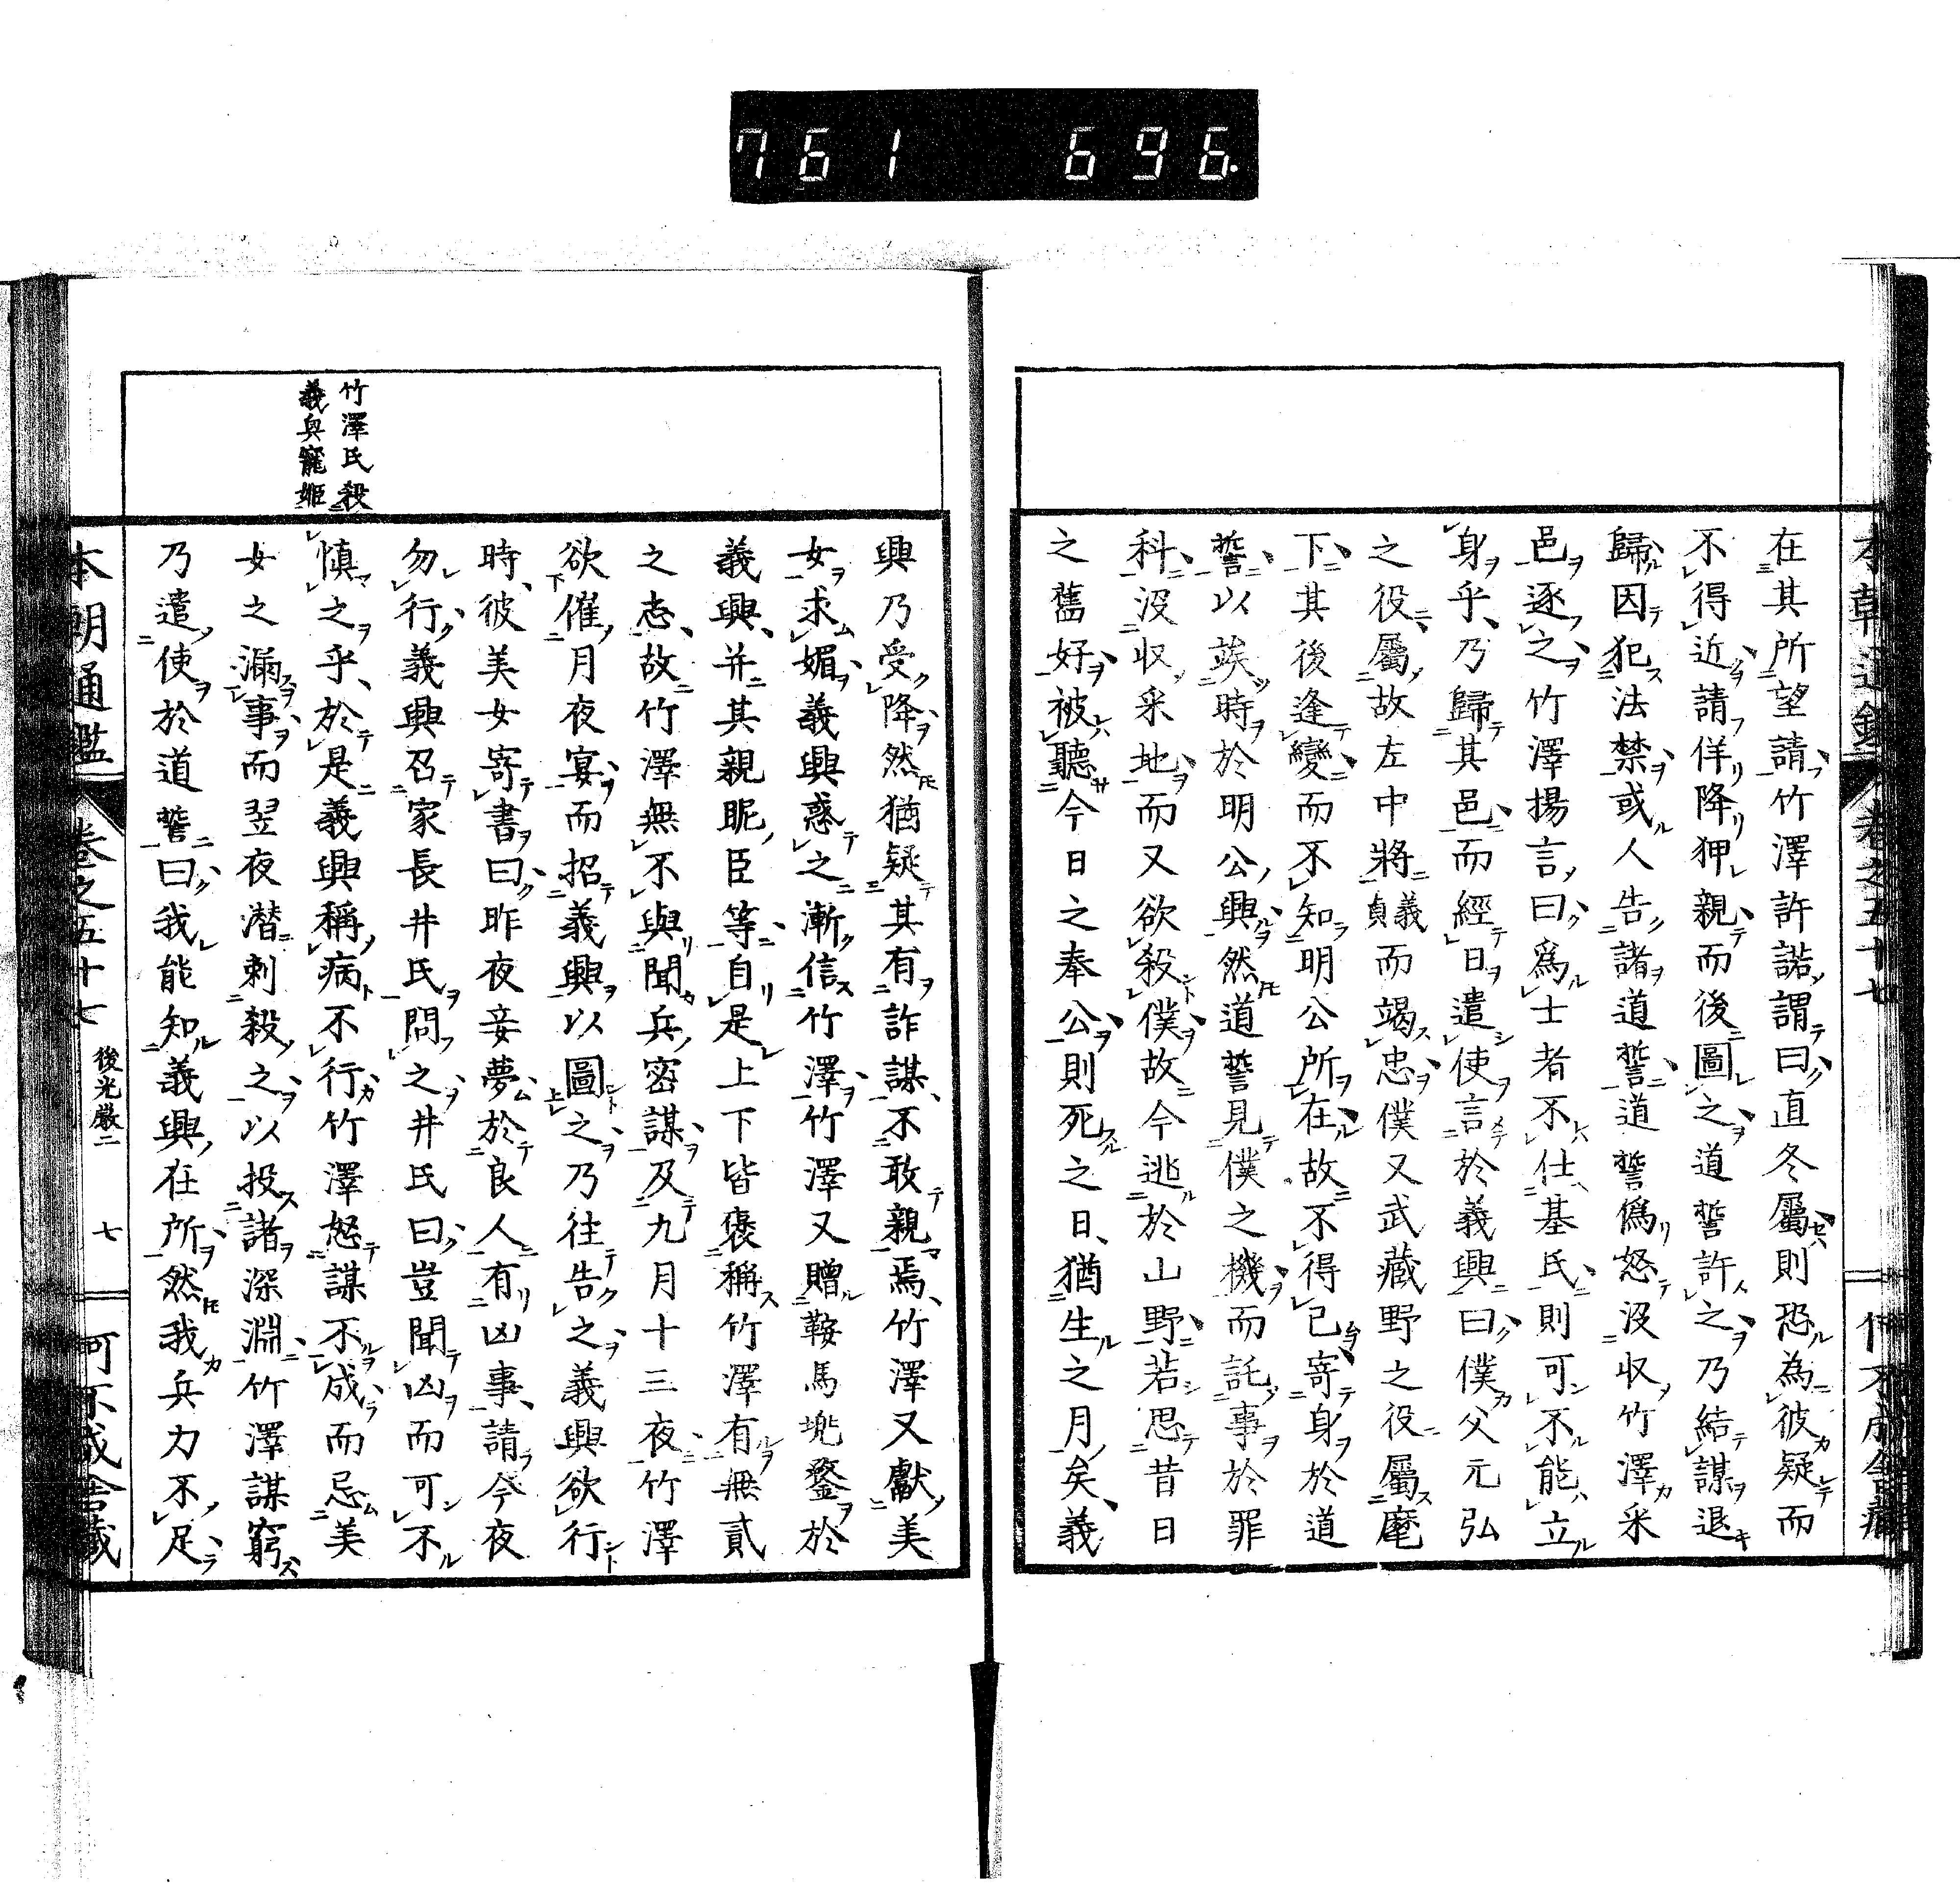 761 696.
本朝通鑑 卷之五十七
在其所望請竹澤許諾謂曰直冬屬則恐為彼疑而
不得近請佯降狎親而後圖之道誓許之乃結謀退
歸因犯法禁或人告諸道誓道誓僞怒沒収竹澤采
邑逐之竹澤揚言曰爲士者不仕基氏則可不能立
身乎乃歸其邑而經日遣使言於義興曰僕父元弘
之役屬故左中將義貞而竭忠僕又武藏野之役屬麾
下其後逢變而不知明公所在故不得已寄身於道
誓以竢時於明公興然道誓見僕之機而託事於罪
科沒収采地而又欲殺僕故今逃於山野若思昔日
之舊好被聽今日之奉公則死之日猶生之月矣義
興乃受降然猶疑其有詐謀不敢親焉竹澤又獻美
女求媚義興惑之漸信竹澤竹澤又贈鞍馬兠鍪於
義興并其親眤臣等自是上下皆褒稱竹澤有無貳
之志故竹澤無不與聞兵密謀及九月十三夜竹澤
欲催月夜宴而招義興以圖之乃往告之義興欲行
時彼美女寄書曰昨夜妾夢於良人有凶事請今夜
勿行義興召家長井氏問之井氏曰豈聞凶而可不
慎之乎於是義興稱病不行竹澤怒謀不成而忌美
女之漏事而翌夜潜刺殺之以投諸深淵竹澤謀窮
乃遣使於道誓曰我能知義興在所然我兵力不足
竹澤氏殺
義興寵姬
本朝通鑑 卷之五十七 後光嚴二 七